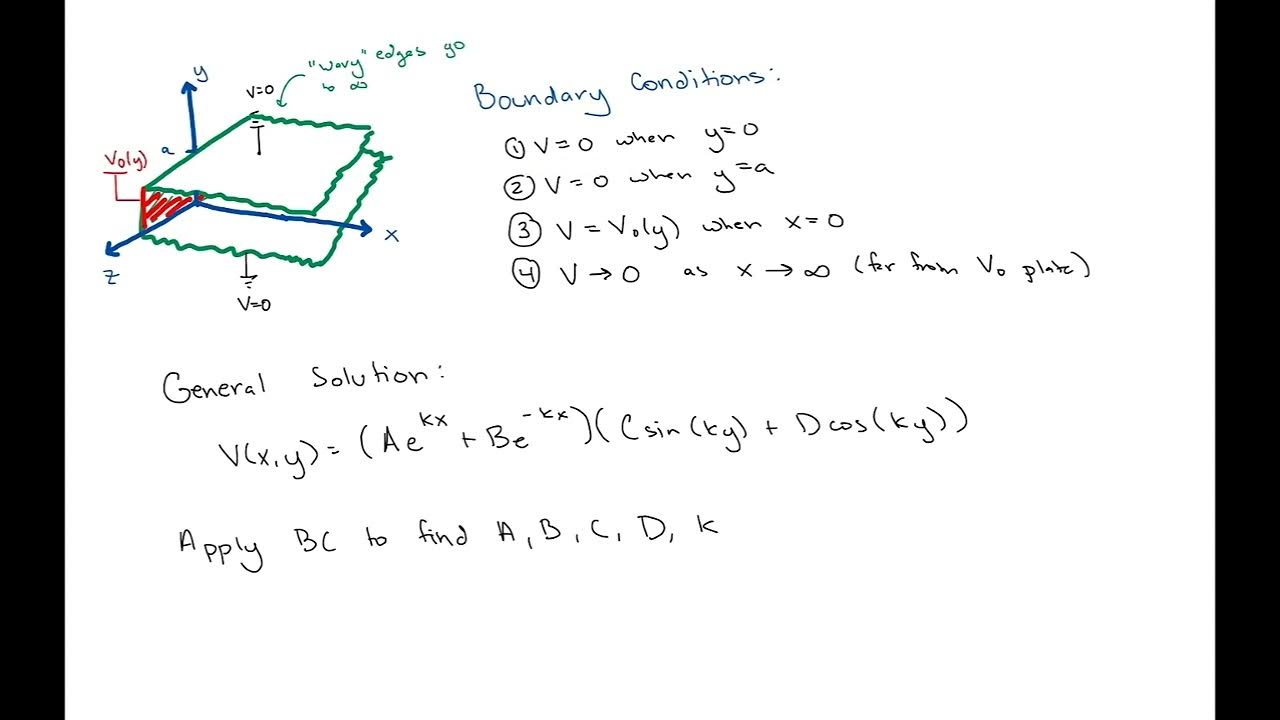 "wavy" edges go
to ∞
y
V=0
a
V₀(y)
x
z
V=0
Boundary Conditions:
① V=0 when y=0
② V=0 when y=a
③ V=V₀(y) when x=0
④ V→0 as x→∞ (far from V₀ plate)
General Solution:
V(x,y)=(Ae^{kx}+Be^{-kx})(Csin(ky)+Dcos(ky))
Apply BC to find A, B, C, D, k